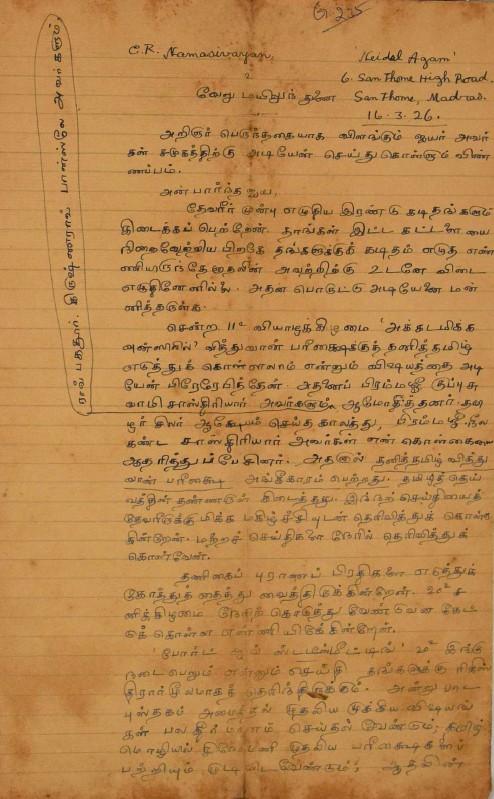 C.R. Namasivayan,
'Neidal Agam'
6. San Thome High Road.
San Thome, Madras.
16.3.26.
உ
வேலு மயிலுந் துணை
அறிஞர் பெருந்தகையாக விளங்கும் ஐயர் அவர்
கள் சமுகத்திற்கு அடியேன் செய்துகொள்ளும் விண்
ணப்பம்.
அன்பார்ந்த ஐய,
தேவரீர் முன்பு எழுதிய இரண்டு கடிதங்களும்
கிடைக்கப் பெற்றேன். தாங்கள் இட்ட கட்டளையை
நிறைவேற்றிய பிறகே தங்களுக்குக் கடிதம் எழுத எண்
ணியிருந்தேனாதலின் அவற்றிற்கு உடனே விடை
எழுதினேனில்லை. அதன் பொருட்டு அடியேனை மன்
னித்தருள்க.
சென்ற 11உ வியாழக்கிழமை 'அக்கடமிக்
கவுன்ஸிலில்' வித்துவான் பரீக்ஷைக்குத் தனித்தமிழ்
எடுத்துக் கொள்ளலாம் என்னும் விஷயத்தை அடி
யேன் பிரேரேபித்தேன். அதனைப் பிரம்மஸ்ரீ குப்புசு
வாமி சாஸ்திரியார் அவர்களும் ஆமோதித்தனர்.
சிலர் ஆக்ஷேபம் செய்த காலத்து, பிரம்மஸ்ரீ நீல
கண்ட சாஸ்திரியார் அவர்கள் என் கொள்கையை
ஆதரித்துப் பேசினர். அதனால் தனித்தமிழ் வித்து
வான் பரீக்ஷை அங்கீகாரம் பெற்றது. தமிழ்த்தெய்
வத்தின் தண்ணருள் கிடைத்தது. இந்நற்செய்தியைத்
தேவரீருக்கு மிக்க மகிழ்ச்சியுடன் தெரிவித்துக் கொள்ளு
கின்றேன். மற்றச் செய்திகளை நேரில் தெரிவித்துக்
கொள்வேன்.
தணிகைப் புராணப் பிரதிகளை எடுத்துக்
கோத்துத்தைத்து வைத்திருக்கின்றேன். 20உ ச
னிக்கிழமை நேரில் கொடுத்து வேண்டுவன கேட்
டுக் கொள்ள எண்ணியிருக்கின்றேன்.
'போர்ட் ஆவ் ஸ்டடீஸ் மீட்டிங்' இங்கு
நடைபெறும் என்னும் செய்தி தங்களுக்கு
தெரிந்திருக்கும். அன்று பாட
புஸ்தகம் அமைத்தல் முதலிய முக்கிய விஷயங்
கள் செய்தல் வேண்டும்; தமிழ்
மொழியில் முதலிய பரீக்ஷைகளைப்
பற்றியும் வேண்டும்; ஆதலின்
ராவ் பகதூர். கிருஷ்ணராவ் பான்ஸ்லே அவர்களும்,